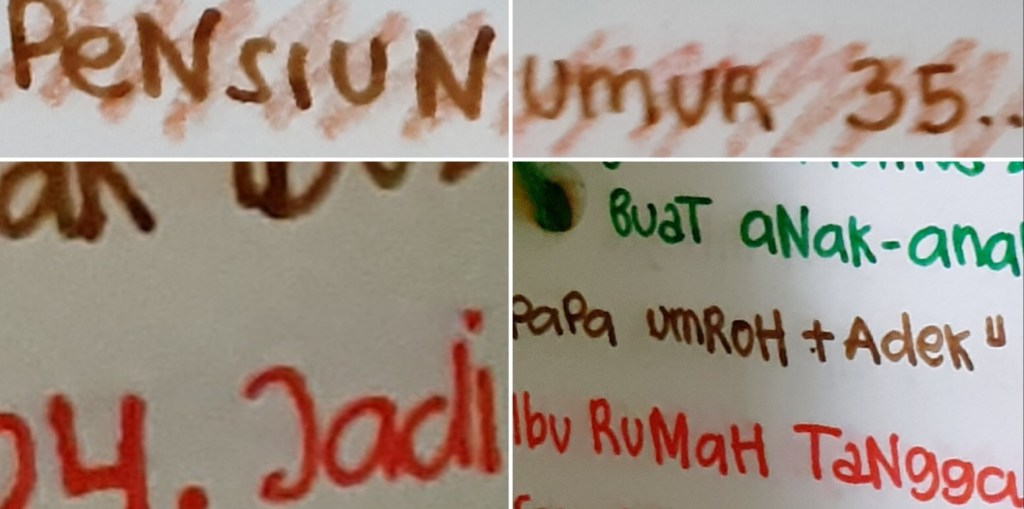 PeNsIUN
umuR 35..
24. Jadi
BuaT aNak-ana
PaPa umRoH + Adek"
Ibu RuMaH TaNgga